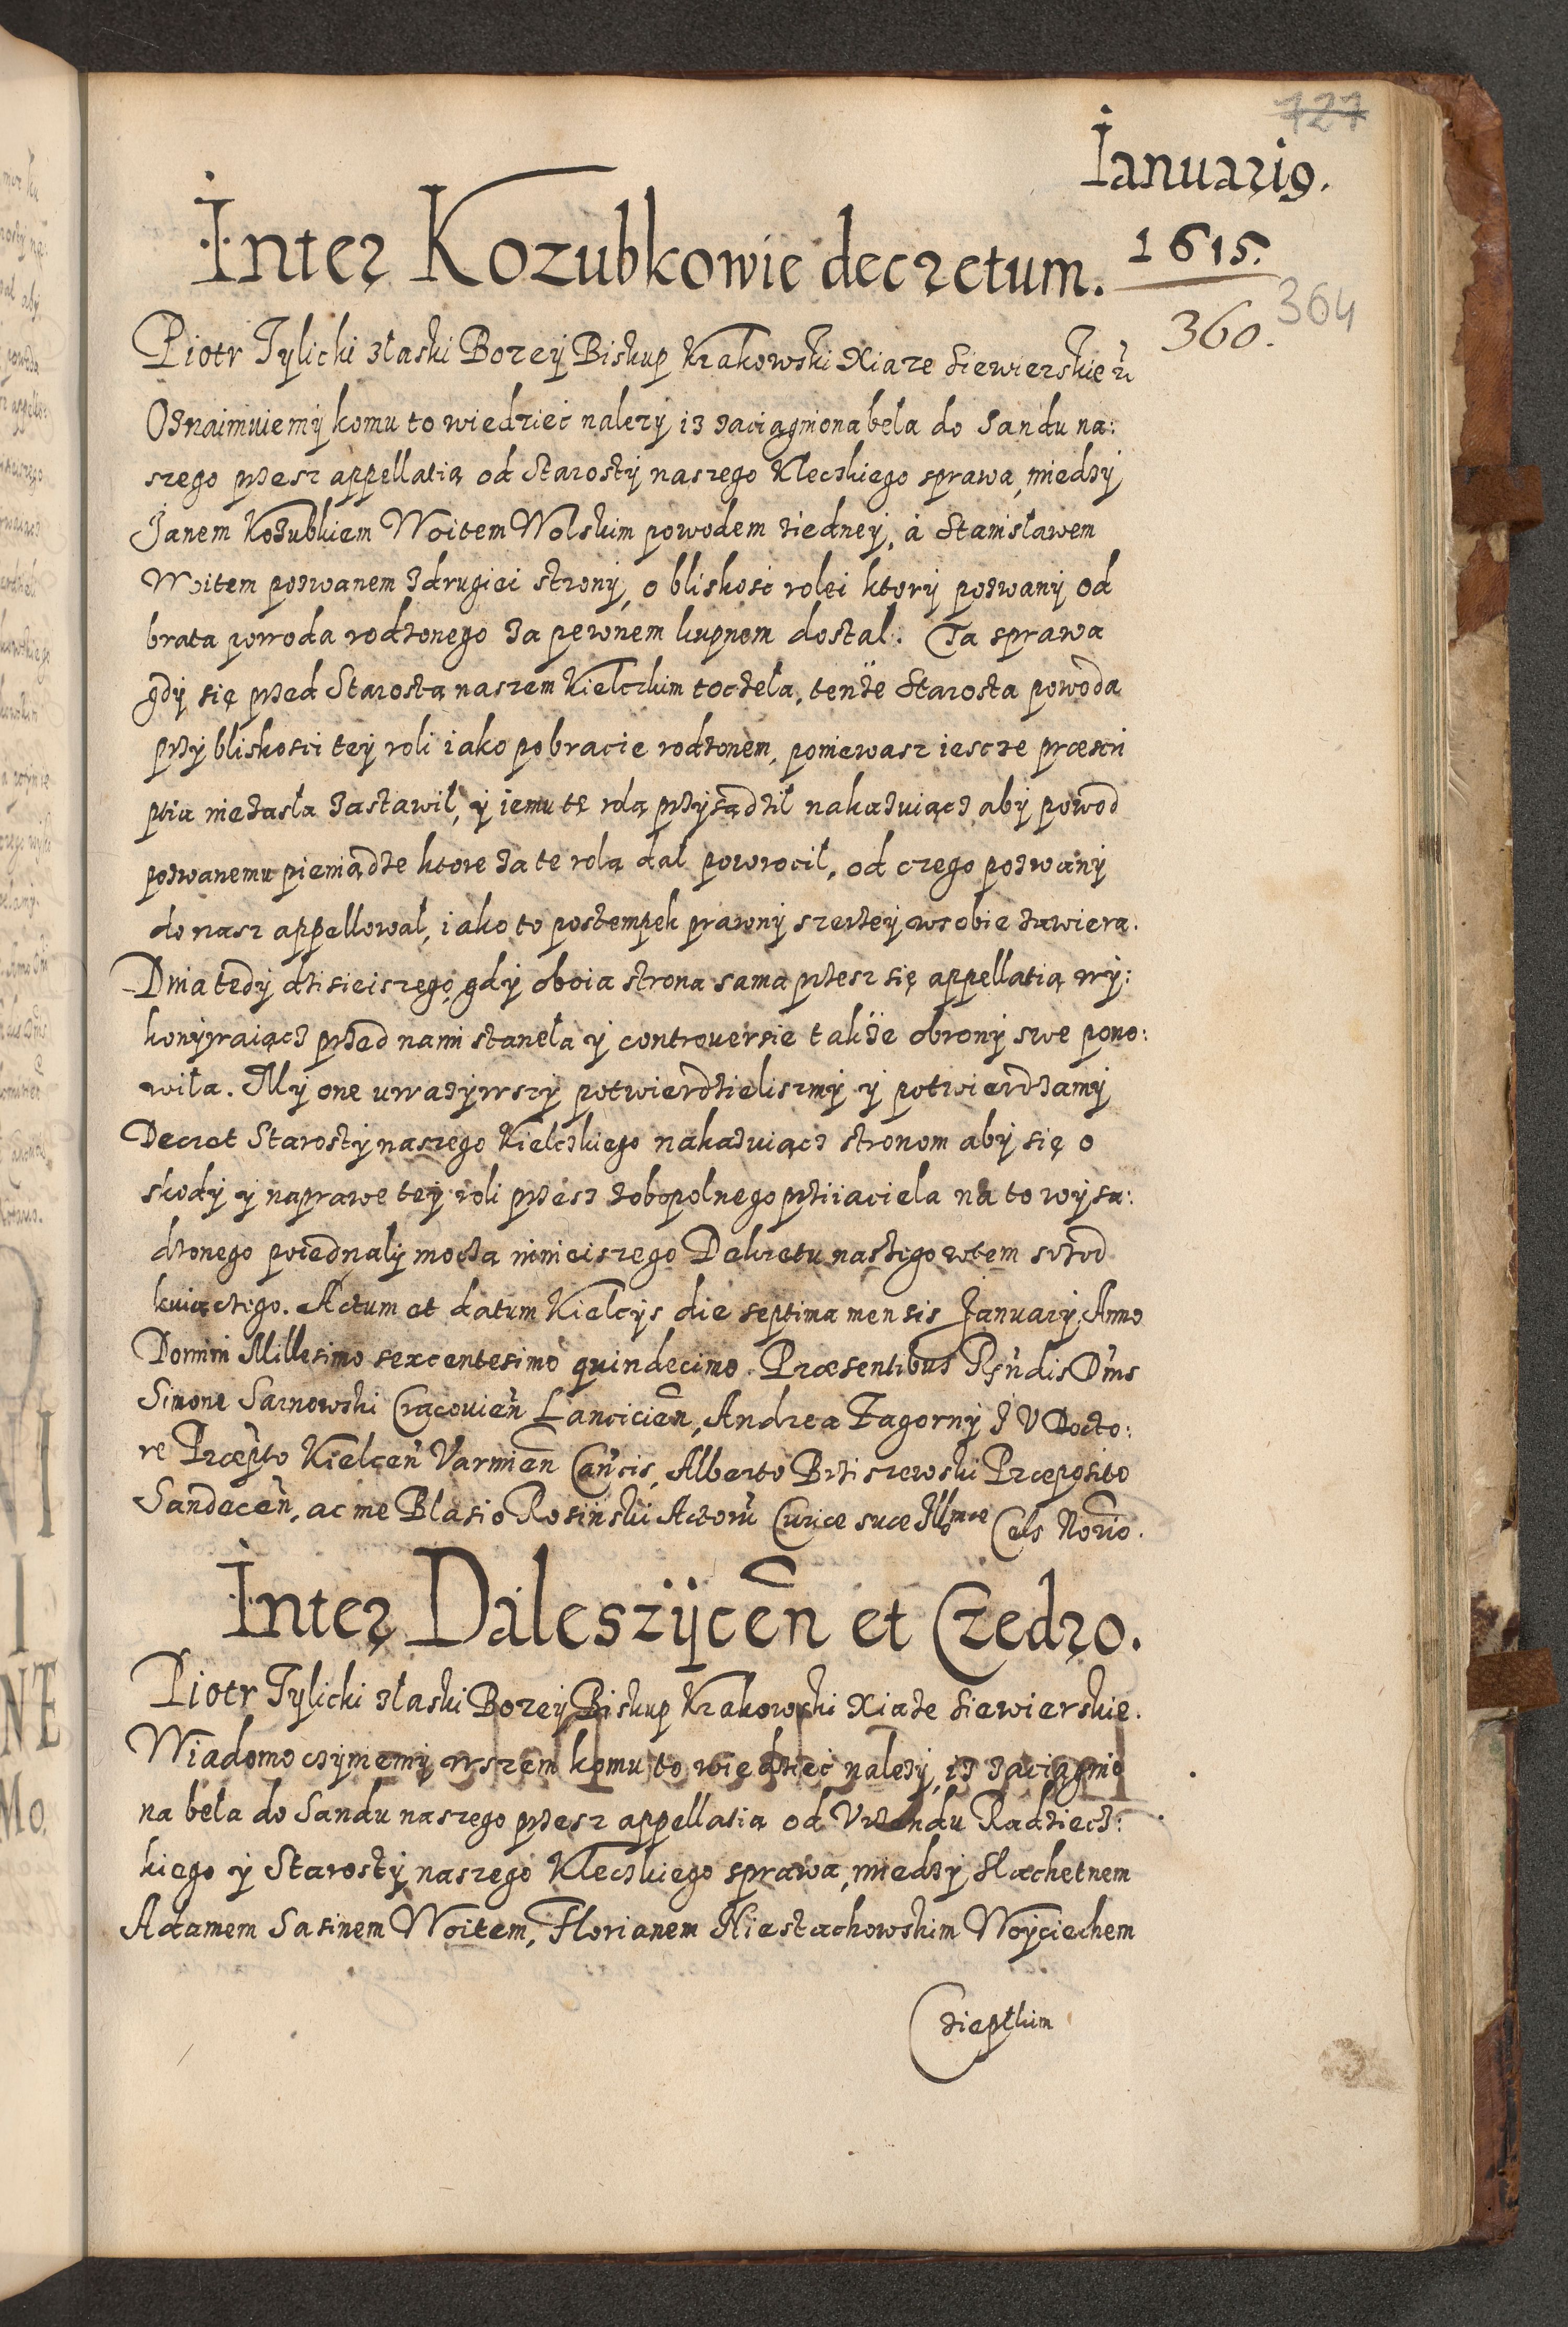 727
Ianuariꝰ.
1615.
364
360.
Inter Kozubkowie decretum.
Piotr Tylicki z łaski Bozey Biskup Krakowski Xiaze Siewierskie
Oznaimuiemÿ komu to wiedziec nalezÿ iz zaciągniona beła do Sandu na:
szego przesz appellatią od Starostÿ naszego Kleczkiego sprawa, miedzÿ
Janem Kozubkiem Woitem Wolskim powodem ziedneÿ, à Stanisławem
Woitem pozwanem z drugiei stronÿ, o bliskosc rolei ktorÿ pozwanÿ od
brata powoda rodzonego za pewnem kupnem dostal. Ta sprawa
gdÿ się przed Starostą naszem Kielczkim toczeła, tenże Starosta powoda
przÿ bliskosci teÿ roli iako po bracie rodzonem, poniewasz iescze præscri
ptia niezaszła zastawił, ÿ iemu tę rolą przÿsądził nakazuiącz abÿ powod
pozwanemu pieniądze ktore za te rolą dał powrocił, od czego pozwanÿ
do nasz appellował, iako to postempek prawnÿ szerzeÿ w sobie zawiera.
Dnia tedÿ dzisieiszego, gdÿ oboia strona sama przesz się appellatią wÿ:
konÿwaiącz przed nami staneła ÿ controuersie także obronÿ swe pono:
wiła. Mÿ one uwazÿwszÿ potwierdzielismÿ ÿ potwierdzamÿ
Decret Starostÿ naszego Kielczkiego nakazuiącz stronom abÿ się o
skodÿ ÿ naprawe teÿ roli przesz zobopolnego prziiaciela na to wÿsa:
dzonego poiednalÿ moczą ninieiszego Dekretu naszego wtem srzod
kuiączego. Actum et datum Kielcÿs die septima mensis Januarÿ Anno
Domini Millesimo sexcentesimo quindecimo. Præsentibus Rṽndis Dñis
Simone Sarnowski Cracovieñ Lancicieñ, Andrea Zagornÿ J V Docto:
re Præpto Kielceñ Varmieñ Cañcis, Alberto Brziszewski Præposito
Sandeceñ, ac me Blasio Rosinski Actorũ Curiæ suæ Illmæ Cels Norio.
Inter Daleszÿceñ et Czedro.
Piotr Tylicki z łaski Bozeÿ Biskup Krakowski Xiaze Siewierskie.
Wiadomo czÿniemÿ wszem komu to wiedziec nalezÿ, iz zaciągnio
na beła do Sandu naszego przesz appellatią od Vrzendu Radziecz:
kiego ÿ Starostÿ naszego Kleczkiego sprawa, miedzÿ slachetnem
Adamem Sasinem Woitem, Florianem Niestachowskim Woÿciechem
Cziepłkim